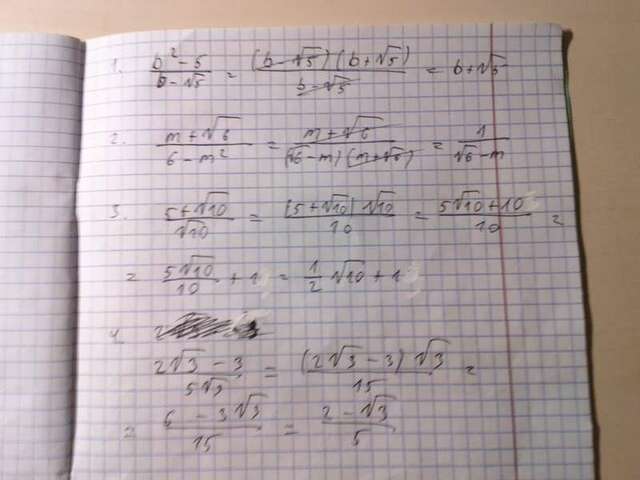 1. (b² - 5)/(b - √5) = ((b - √5)(b + √5))/(b - √5) = b + √5
2. (m + √6)/(6 - m²) = (m + √6)/((√6 - m)(m + √6)) = 1/(√6 - m)
3. (5 + √10)/√10 = ((5 + √10) √10)/10 = (5√10 + 10)/10 =
= 5√10/10 + 1 = 1/2 √10 + 1
4. 2
(2√3 - 3)/(5√3) = ((2√3 - 3) √3)/15 =
= (6 - 3√3)/15 = (2 - √3)/5